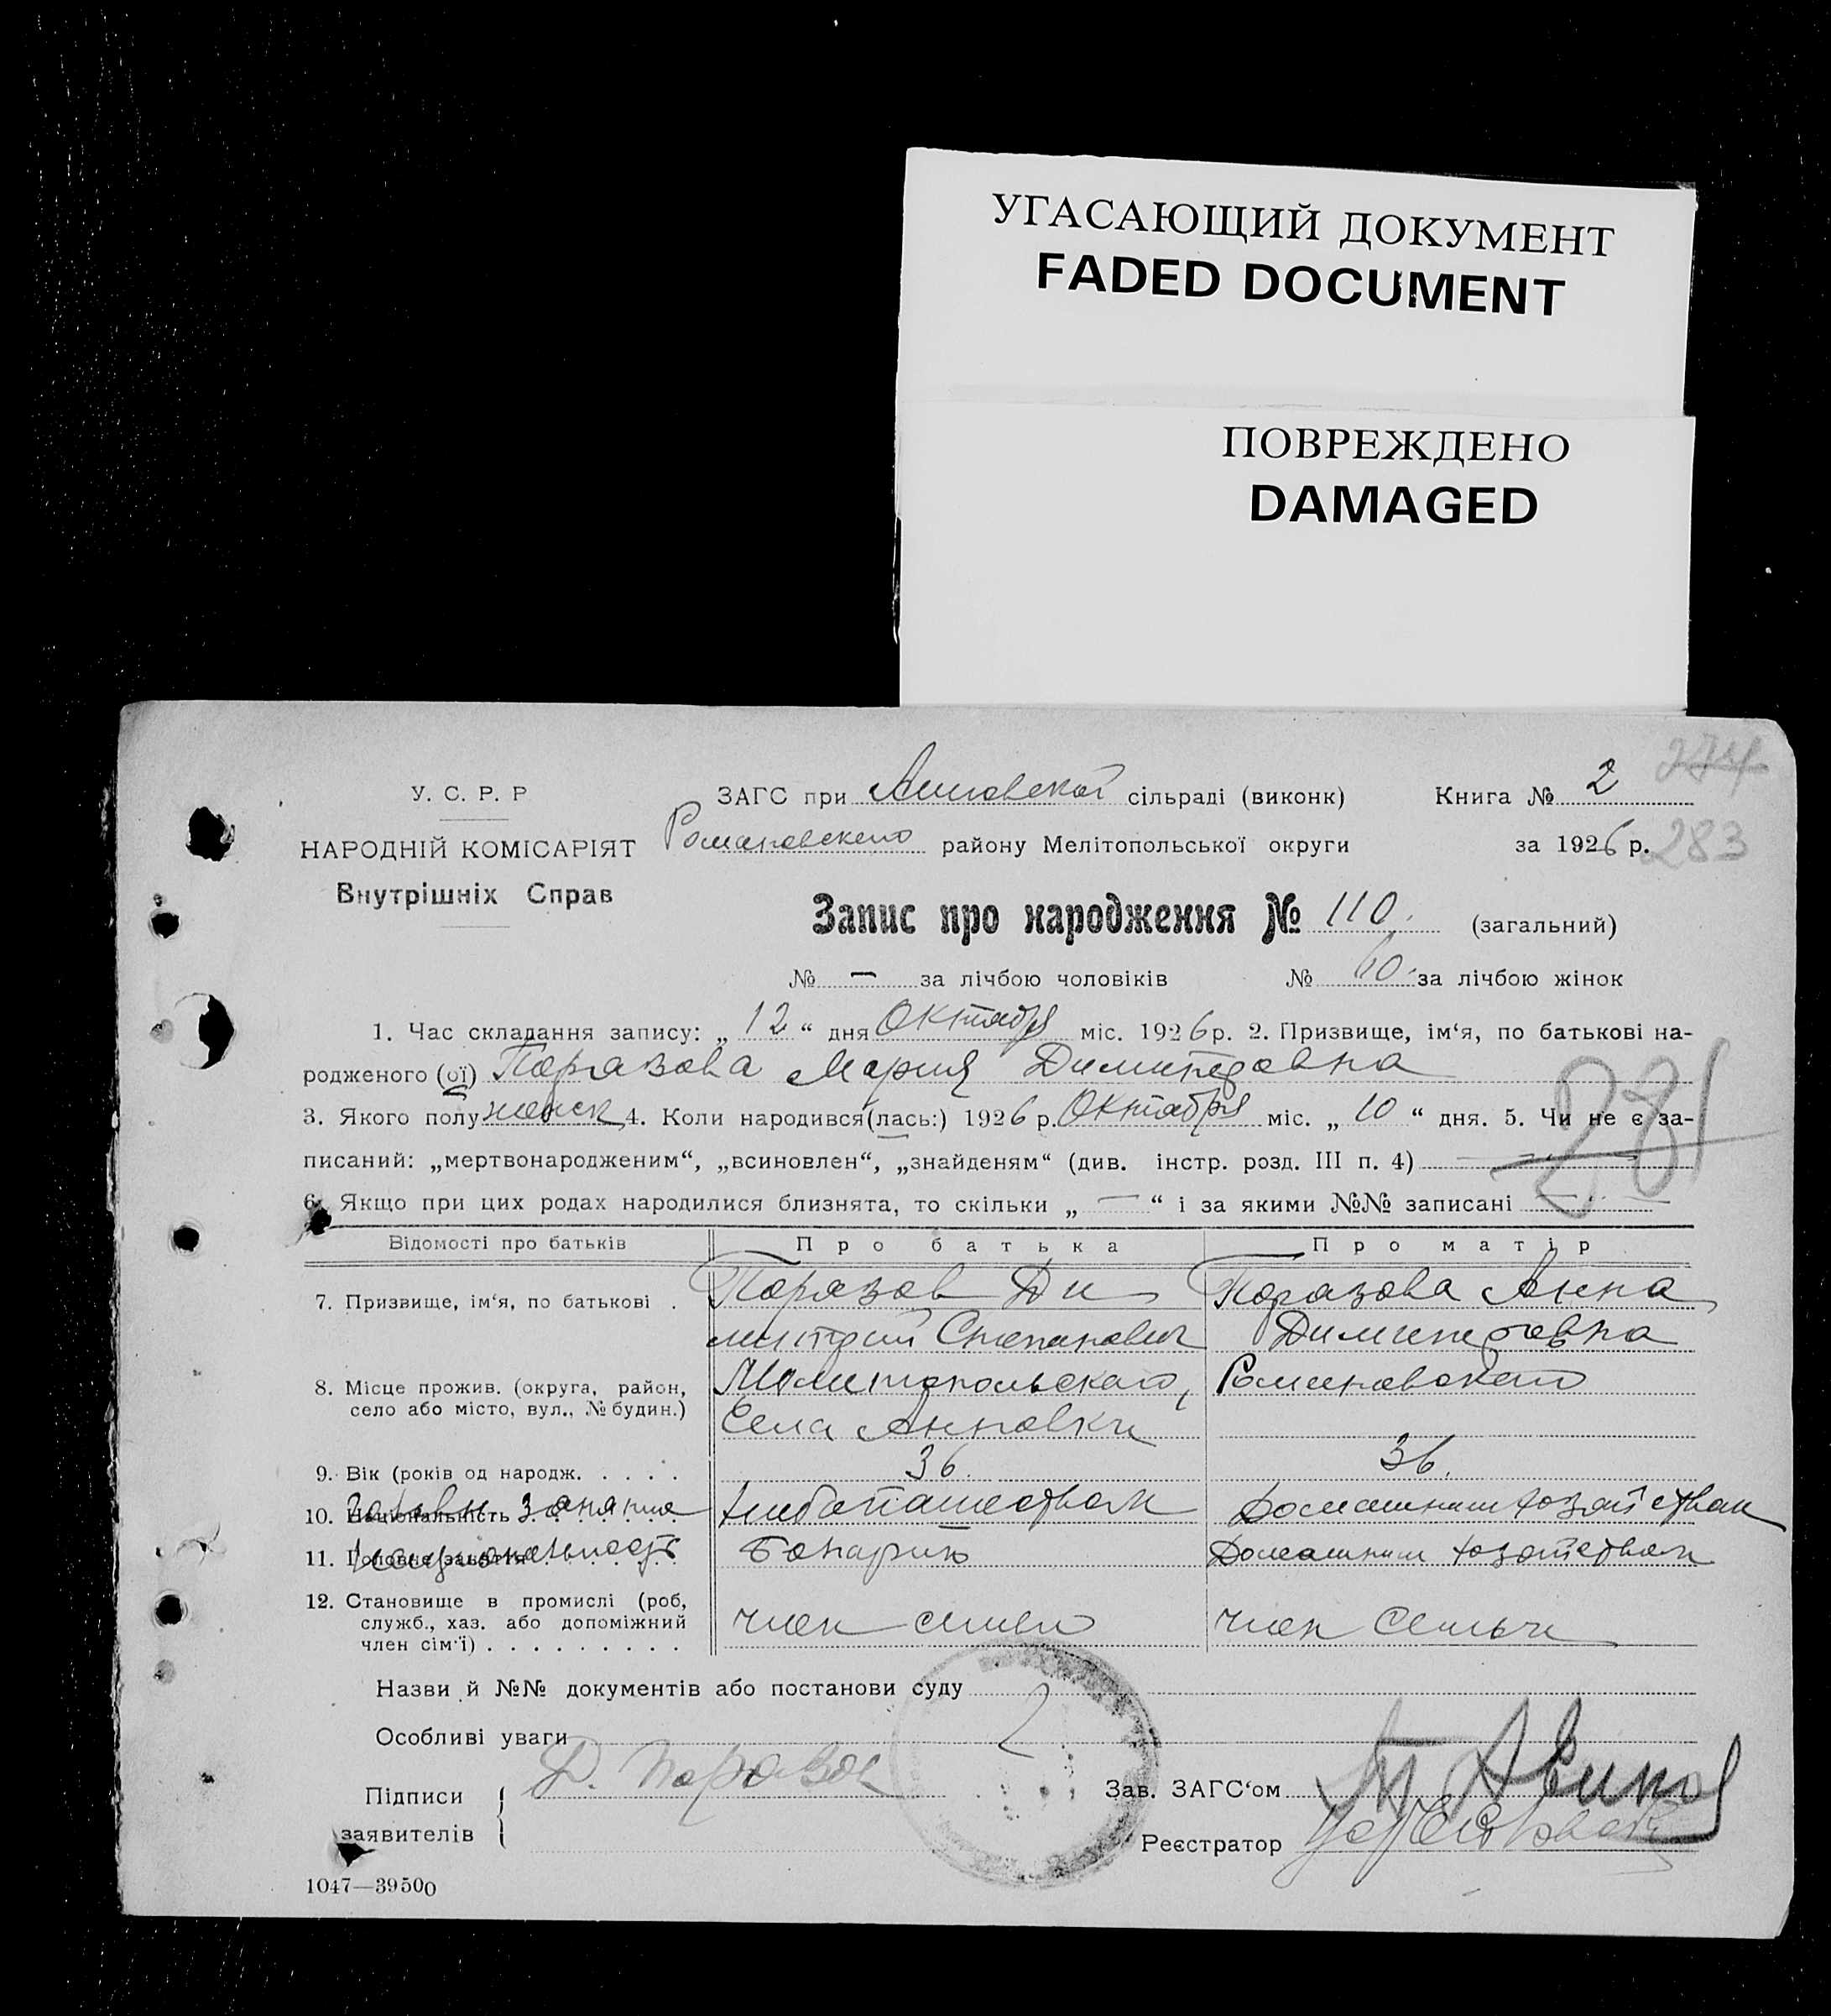 УГАСАЮЩИЙ ДОКУМЕНТ
FADED DOCUMENT
ПОВРЕЖДЕНО
DAMAGED
274
У. С. Р. Р
ЗАГС при Анновской сільраді (виконк)
Книга № 2
НАРОДНІЙ КОМІСАРІЯТ
Романовского району Мелітопольської округи
за 1926 р. 283
Внутрішніх Справ
Запис про народження № 110. (загальний)
№ — за лічбою чоловіків № 60 за лічбою жінок
1. Час складання запису: „ 12 “ дня Октября міс. 1926 р. 2. Призвище, ім‘я, по батькові на-
родженого (ої) Поразова Мария Димитровна
3. Якого полу женск 4. Коли народився(лась:) 1926 р. Октября міс. „ 10 “ дня. 5. Чи не є за-
281
писаний: „мертвонародженим“, „всиновлен“, „знайденям“ (див. інстр. розд. III п. 4) —
6. Якщо при цих родах народилися близнята, то скільки „ — “ і за якими №№ записані —
Відомості про батьків Про батька Про матір
7. Призвище, ім‘я, по батькові . Поразов Ди Поразова Анна
митрий Степанович Димитровна
8. Місце прожив. (округа, район, Мелитопольского, Романовского
село або місто, вул., № будин.) Села Анновки
9. Вік (років од народж. . . . . 36. 36.
10. Національність Главн. занятие хлебопашеством Домашним хозяйством
11. Головне заняття национальность Болгарин Домашним хозяйством
12. Становище в промислі (роб,
служб., хаз. або допоміжний член семьи член Семьи
член сім‘ї) . . . . . . . . .
Назви й №№ документів або постанови суду
Особливі уваги
Підписи Д. Поразов
Зав. ЗАГС‘ом
заявителів
Реєстратор
1047—39500